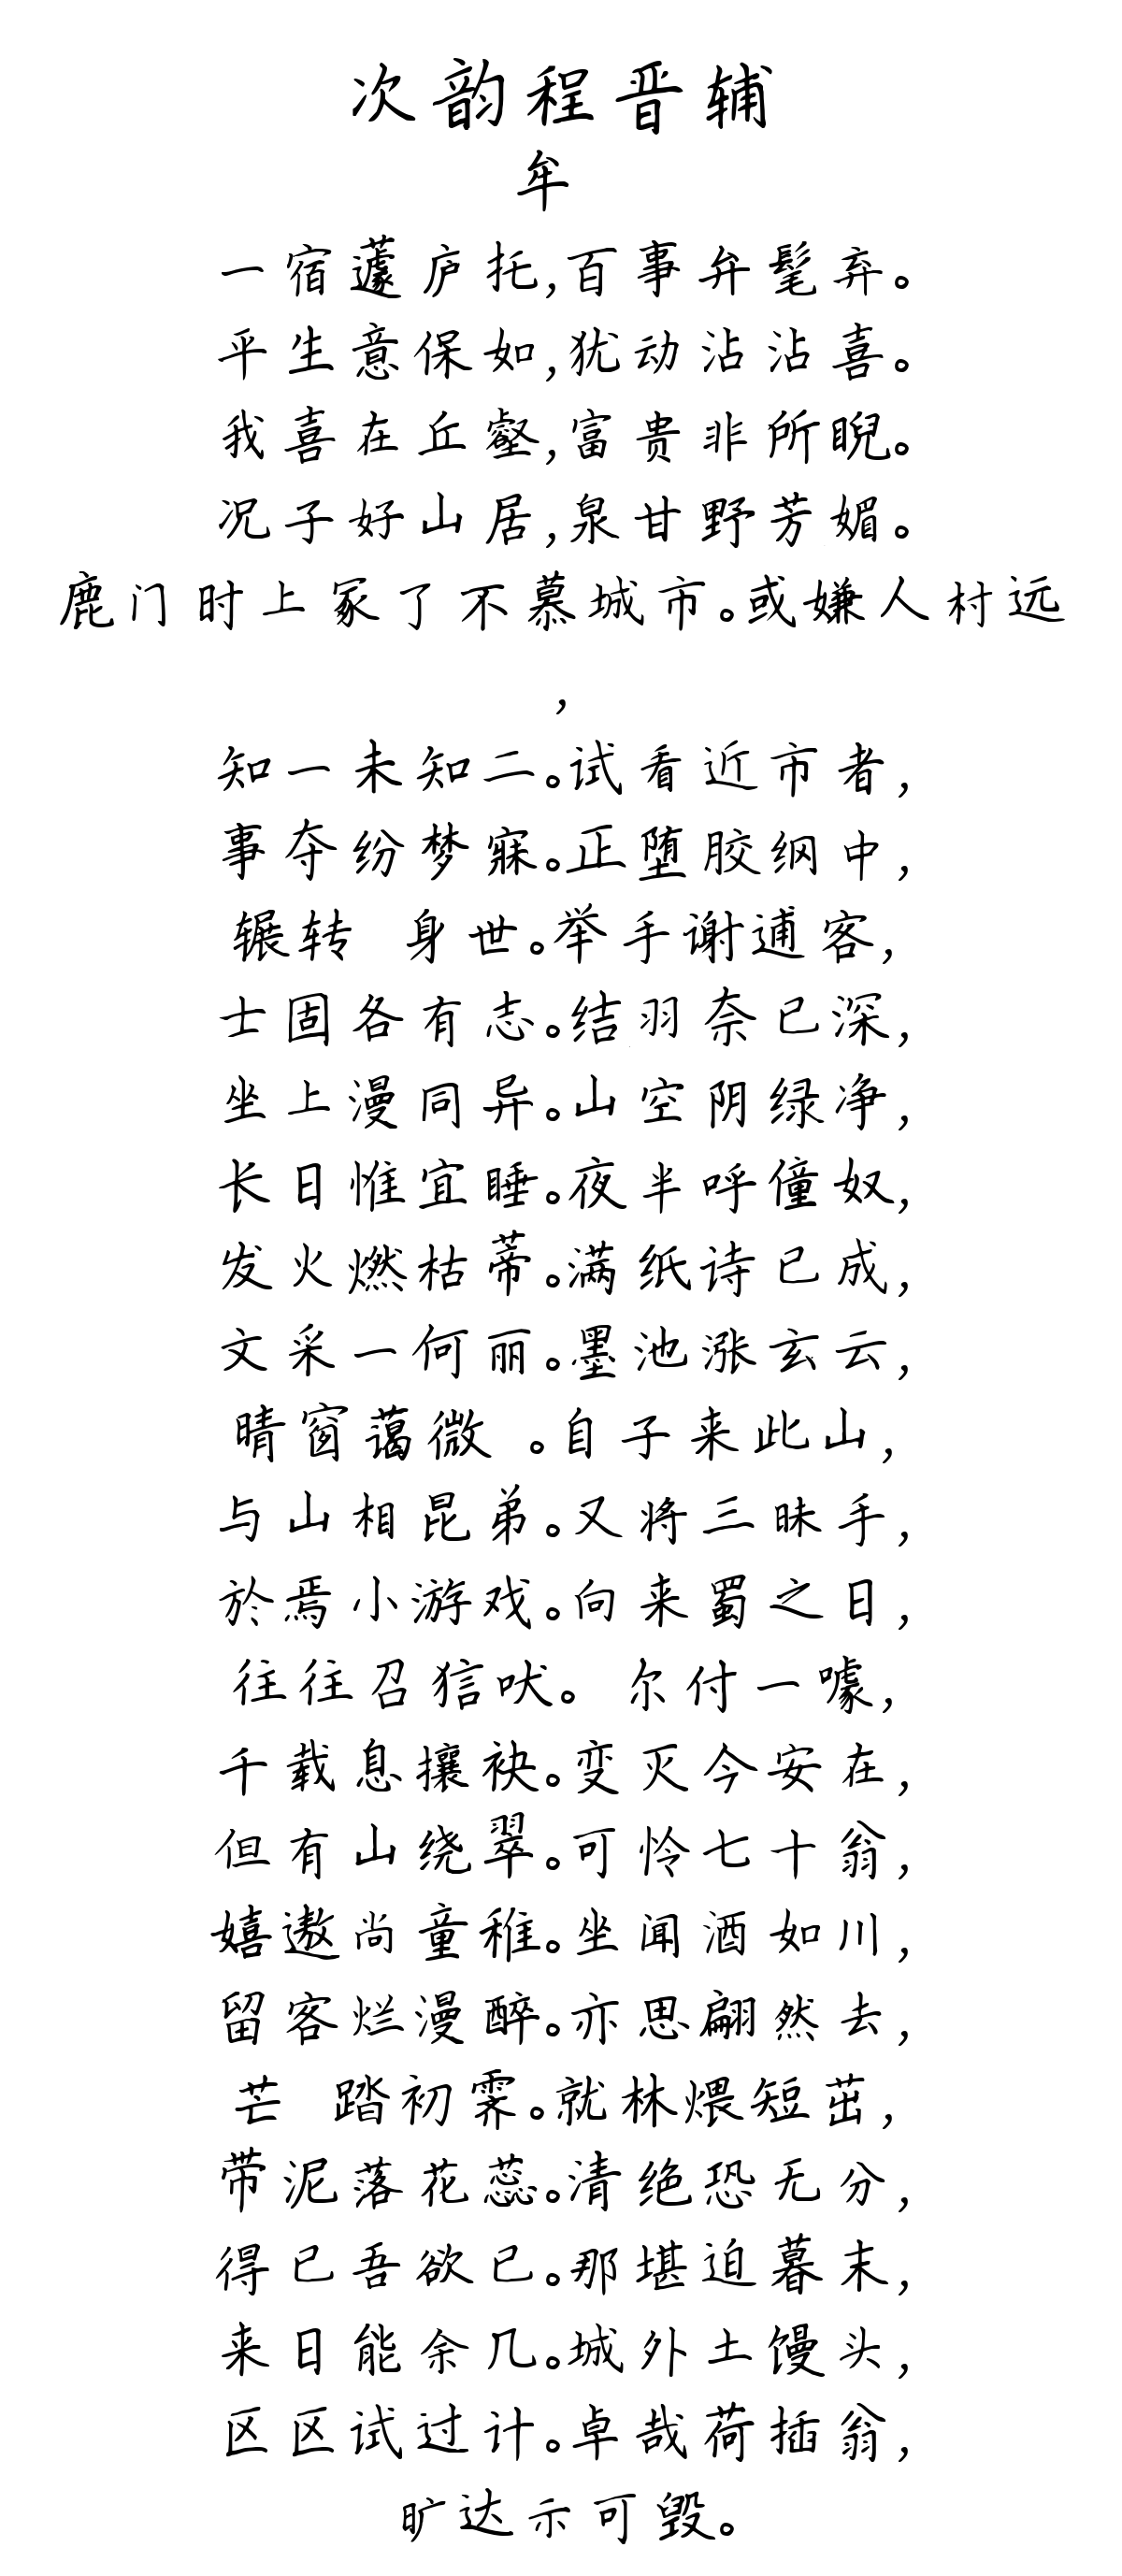 次韵程晋辅
牟
一宿蘧庐托,百事弁髦弃。
平生意保如,犹动沾沾喜。
我喜在丘壑,富贵非所睨。
况子好山居,泉甘野芳媚。
鹿门时上冢了不慕城市。或嫌人村远
,
知一未知二。试看近市者,
事夺纷梦寐。正堕胶纲中,
辗转 身世。举手谢逋客,
士固各有志。结羽奈已深,
坐上漫同异。山空阴绿净,
长日惟宜睡。夜半呼僮奴,
发火燃枯蒂。满纸诗已成,
文采一何丽。墨池涨玄云,
晴窗蔼微 。自子来此山,
与山相昆弟。又将三昧手,
於焉小游戏。向来蜀之日,
往往召狺吠。 尔付一噱,
千载息攘袂。变灭今安在,
但有山绕翠。可怜七十翁,
嬉遨尚童稚。坐闻酒如川,
留客烂漫醉。亦思翩然去,
芒 踏初霁。就林煨短茁,
带泥落花蕊。清绝恐无分,
得已吾欲已。那堪迫暮末,
来日能余几。城外土馒头,
区区试过计。卓哉荷插翁,
旷达示可毁。